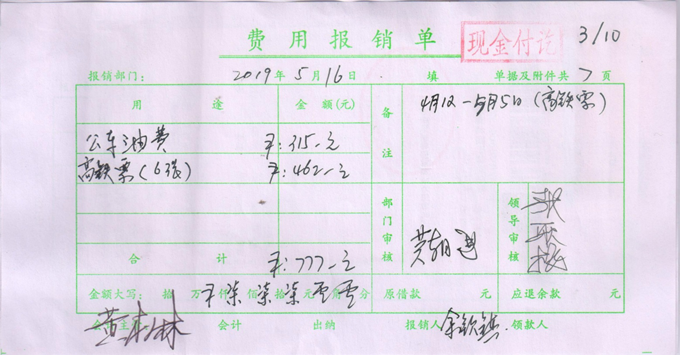 费用报销单
现金付讫
3/10
报销部门： 2019年5月16日 填 单据及附件共 7 页
用途 金额(元) 备注 4月12-5月5日(高铁票)
公车油费 ¥:315-元
高铁票(6张) ¥:462-元
部门审核 领导审核
合计 ¥:777-元
金额大写： 拾 万 仟 佰 拾 元 角 分 ¥柒柒柒零零 原借款 元 应退余款 元
会计主管 会计 出纳 报销人 领款人